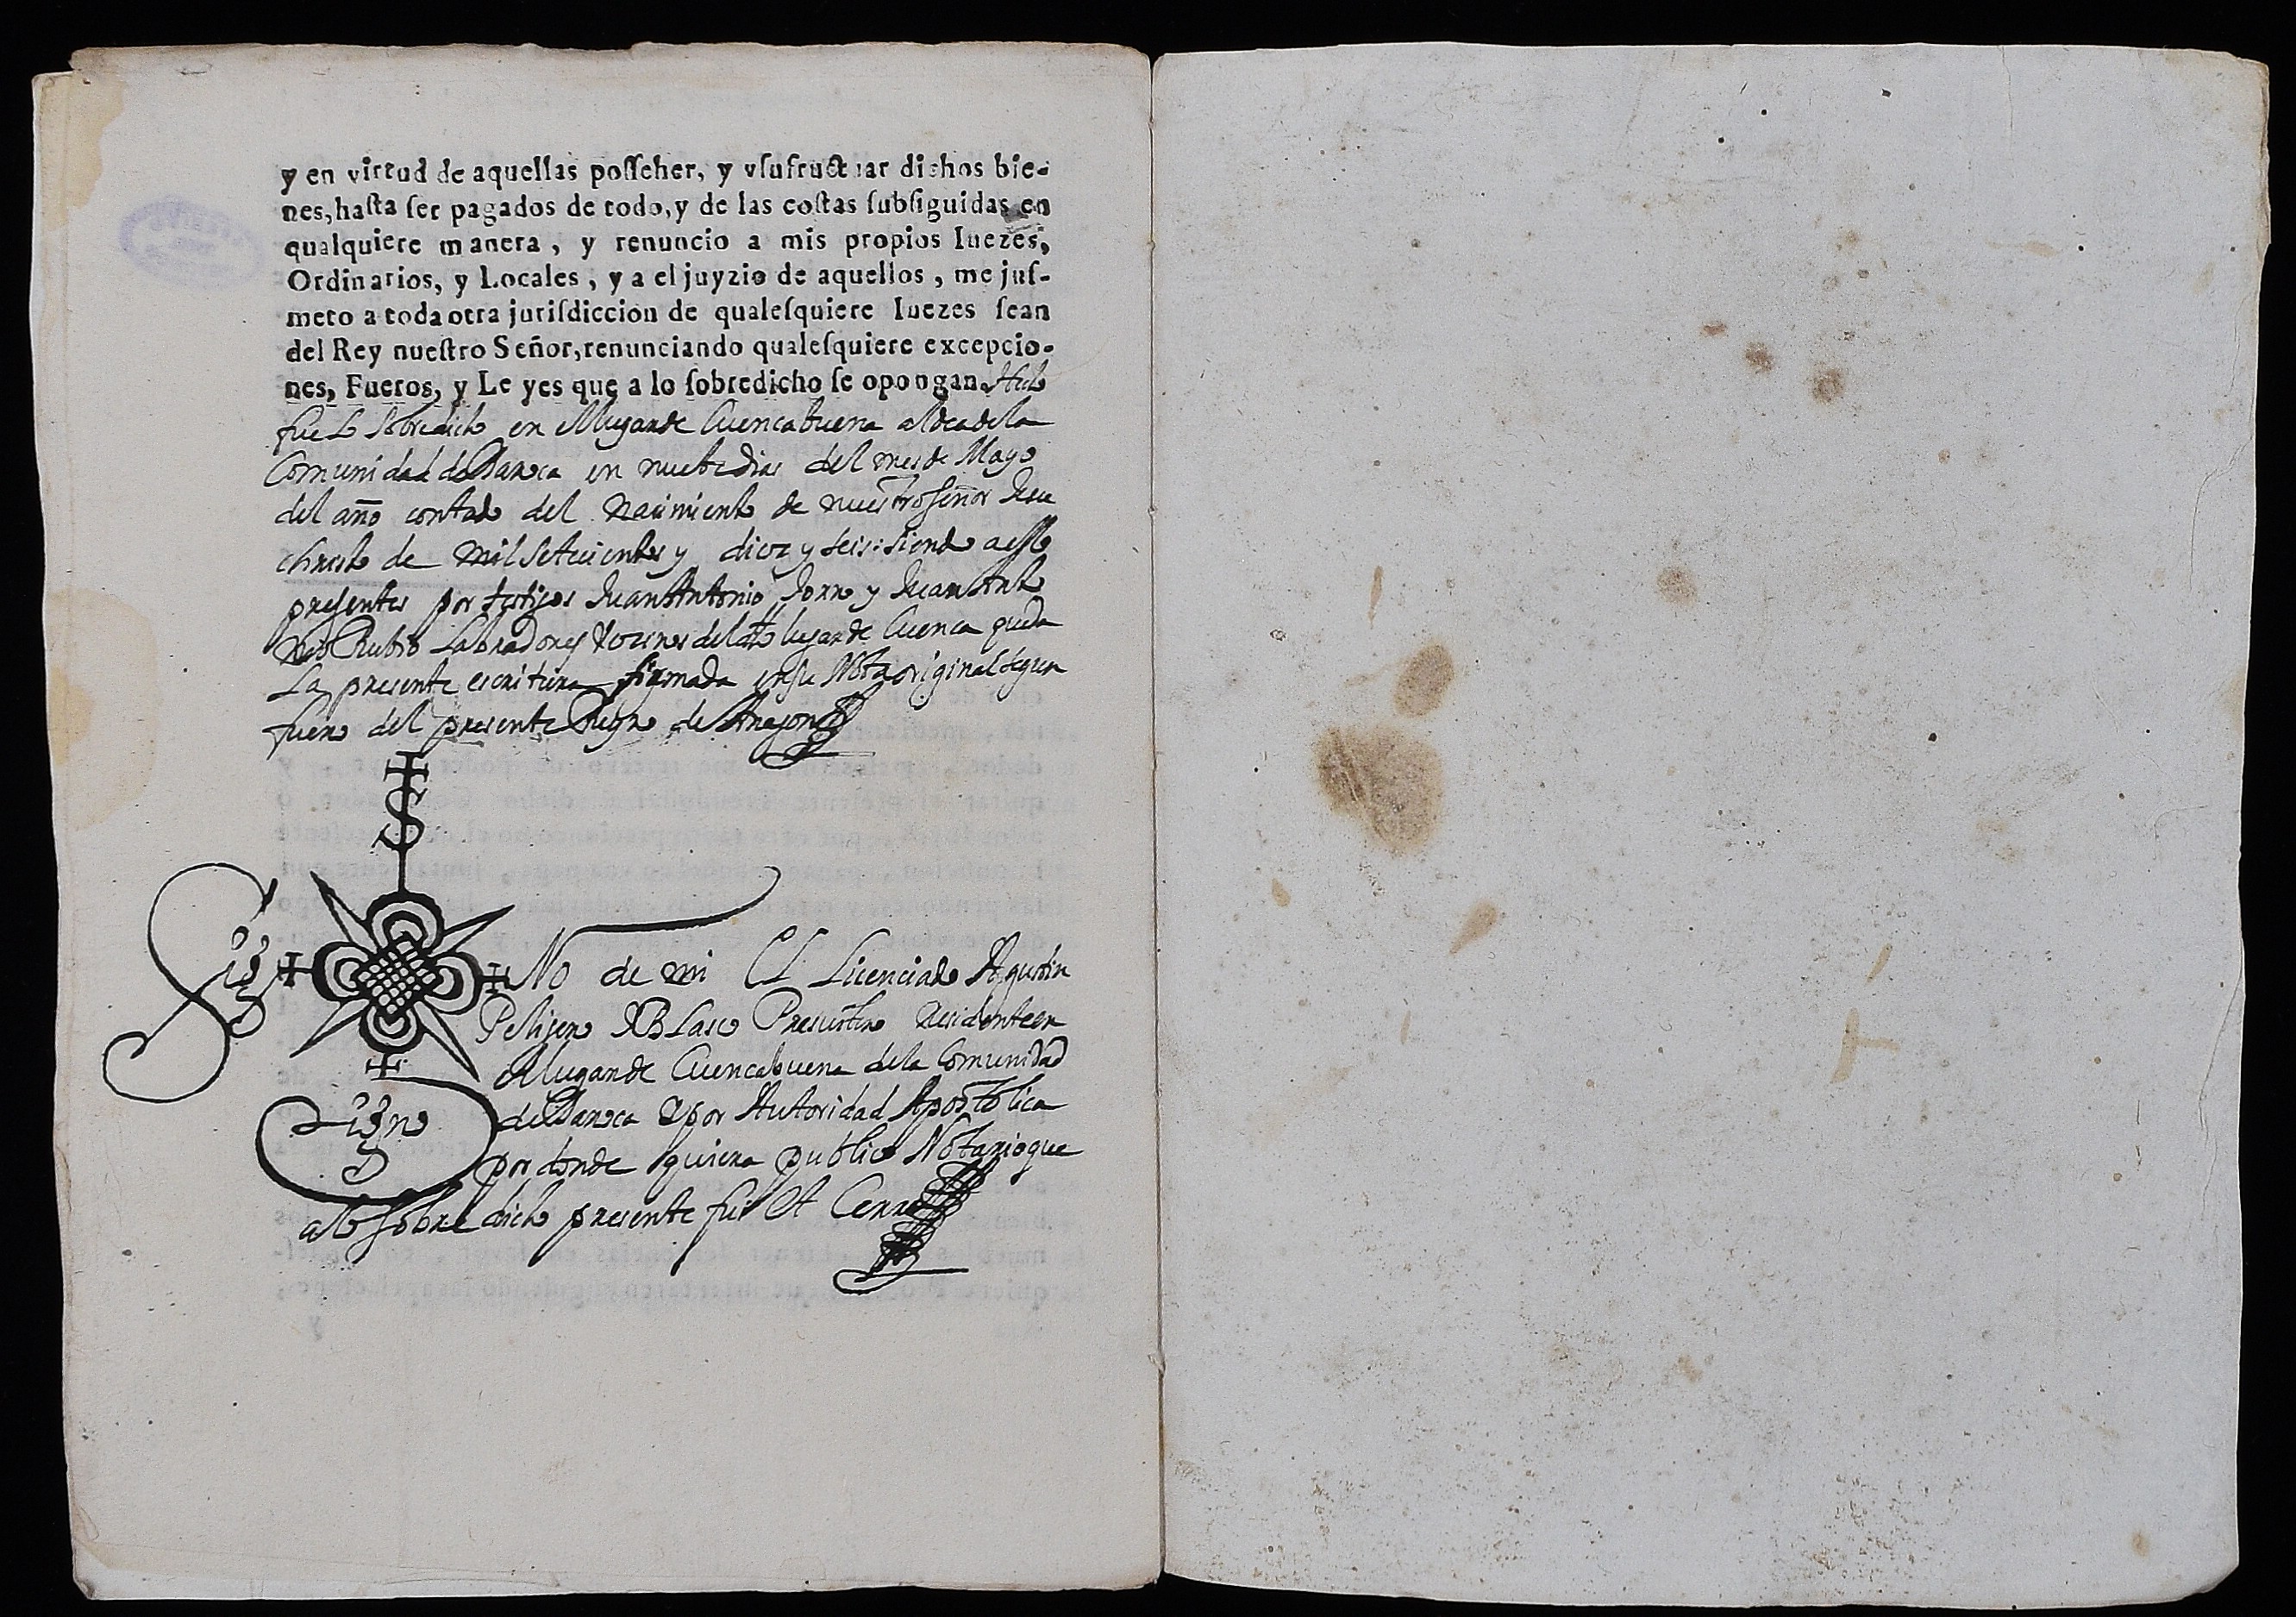 y en virtud de aquellas poſſeher, y vſufructuar dichos bie-
nes, haſta ſer pagados de todo, y de las coſtas ſubſiguidas en
qualquiere manera, y renuncio a mis propios Iuezes,
Ordinarios, y Locales, y a el juyzio de aquellos, me juſ-
meto a toda otra juriſdiccion de qualeſquiere Iuezes ſean
del Rey nueſtro Señor, renunciando qualeſquiere excepcio-
nes, Fueros, y Le yes que a lo ſobredicho ſe opongan. Hecho
fue lo sobredicho en el lugar de Cuencabuena aldea de la
Comunidad de Daroca en nuebe dias del mes de Mayo
del año contado del nacimiento de nuestro señor Jesu
christo de mil setecientos y diez y seis: siendo a esto
presentes por testigos Juan Antonio Lorro y Juan Anto
nio Rubio Labradores vecinos del dho lugar de Cuenca queda
la presente escritura firmada en su Nota original segun
fuero del presente Reyno de Aragon
S
Sig No de mi El Licenciado Agustin
Pelijero Blasco Presvitero residente en
el lugar de Cuencabuena de la Comunidad
de Daroca y por Autoridad Apostolica
Signo
por donde quiera publico Notario que
a lo sobre dicho presente fui et Cerre
y